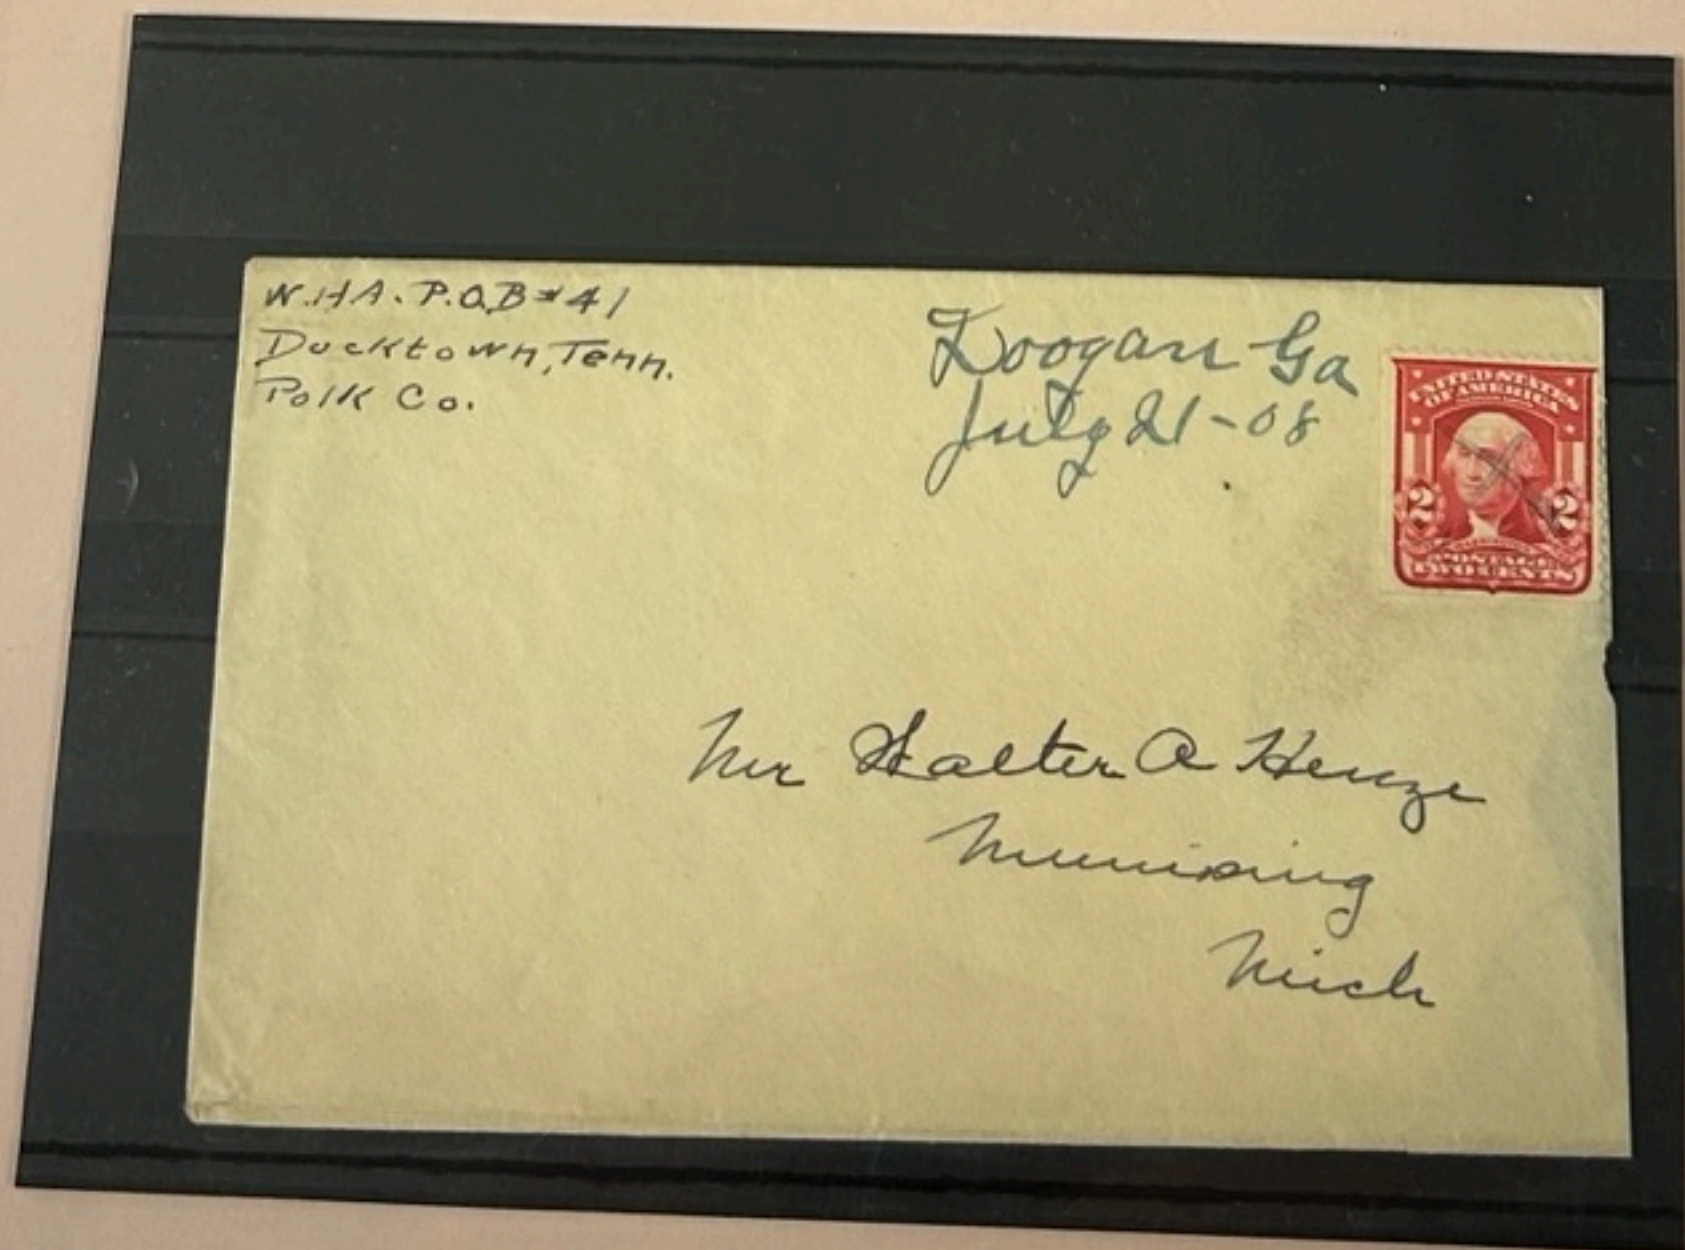 W.H.A. P.O.B #41
Ducktown, Tenn.
Polk Co.
Doogan Ga
July 21-08
UNITED STATES
OF AMERICA
2 2
TWO CENTS
Mr Walter A Henze
Munising
Mich